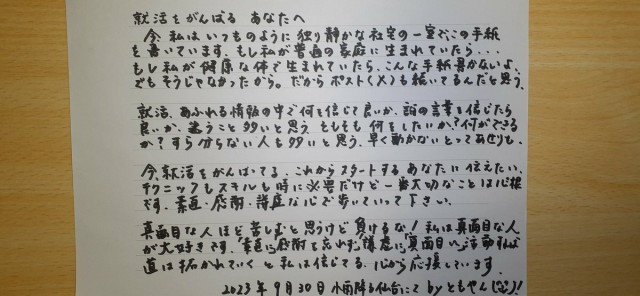 就活をがんばる あなたへ
今、私はいつものように独り静かな社宅の一室でこの手紙
を書いています。もし私が普通の家庭に生まれていたら...
もし私が健康な体で生まれていたら、こんな手紙書かないよ、
でもそうじゃなかったから。だからポスト(X)も続いてるんだと思う。
就活、あふれる情報の中で何を信じて良いか、誰の言葉を信じたら
良いか、迷うこと多いと思う。そもそも何をしたいか?何ができる
か?すら分らない人も多いと思う。早く動かないとってあせりも。
今、就活をがんばってる、これからスタートするあなたに伝えたい。
テクニックもスキルも時に必要だけど一番大切なことは心根
です。素直・感謝・謙虚な心で歩いていって下さい。
真面目な人ほど苦しむと思うけど負けるな!私は真面目な人
が大好きです。素直に感謝を忘れず謙虚に真面目に活動すれば
道は拓かれていくと私は信じてる。心から応援しています。
2023年9月30日 小雨降る仙台にて by ともやん